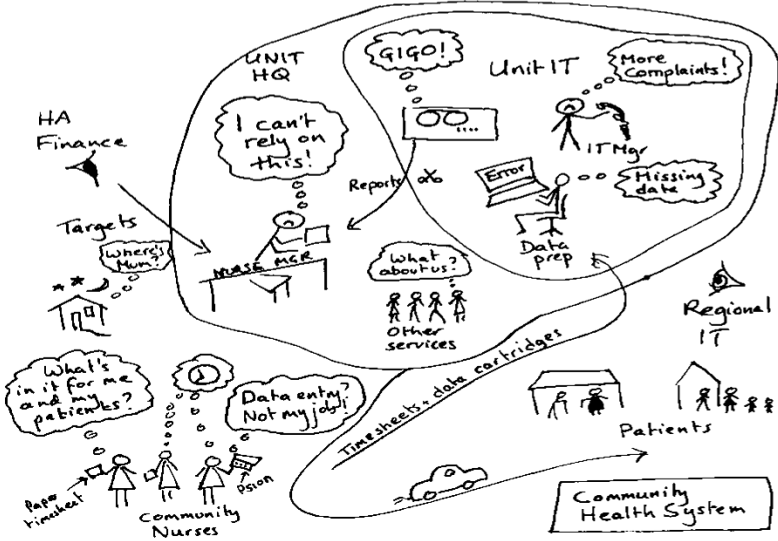 UNIT
HQ
GIGO!
Unit IT
More
Complaints!
HA
Finance
I can't
rely on
this!
IT Mgr
Reports
Error
Missing
date
Targets
Where's
Mum?
NURSE MGR
What
about us?
Data
prep
Other
services
Regional
IT
What's
in it for me
and my
patients?
Data entry?
Not my job!
Timesheets + data cartridges
Patients
Paper
timesheet
Psion
Community
Nurses
Community
Health System